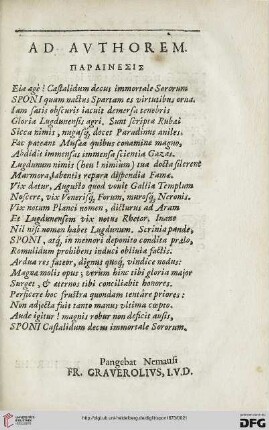 AD AVTHOREM.
ΠΑΡΑΙΝΕΣΙΣ
Eia agè! Castalidum decus immortale Sororum
SPONI quam nactus Spartam es virtutibus orna.
Iam satis obscuris iacuit demersa tenebris
Gloria Lugdunensis agri. Sunt scripta Rubæi
Sicca nimis, nugasq; docet Paradinus aniles.
Fac pateant Musea quibus conamine magno,
Abdidit immensas immensa scientia Gazas.
Lugdunum nimis (heu! nimium) tua docta silerent
Marmora, labentis repara dispendia Famæ.
Vix datur, Augusto quod vouit Gallia Templum
Noscere, vix Venerisq; Forum, murosq; Neronis.
Vix notam Planci nomen, dicturus ad Aram
Et Lugdunensem vix notus Rhetor. Inane
Nil nisi nomen habet Lugdunum. Scrinia pande,
SPONI, atq; in memori deposito condita prælo,
Romulidum prohibens induci obliuia factis.
Ardua res fateor, dignus quoq; vindice nodus:
Magna molis opus; verùm hinc tibi gloria maior
Surget, & æternos tibi conciliabit honores.
Perficere hoc frustra quondam tentâre priores:
Non adjecta fuit tanto manus vltima cœpto.
Aude igitur! magnis robur non deficit ausis,
SPONI Castalidum decus immortale Sororum.
Pangebat Nemausi
FR. GRAVEROLIVS, I.V.D.
http://digi.ub.uni-heidelberg.de/diglit/spon1673/0021
© Universitätsbibliothek Heidelberg
gefördert durch die
DFG